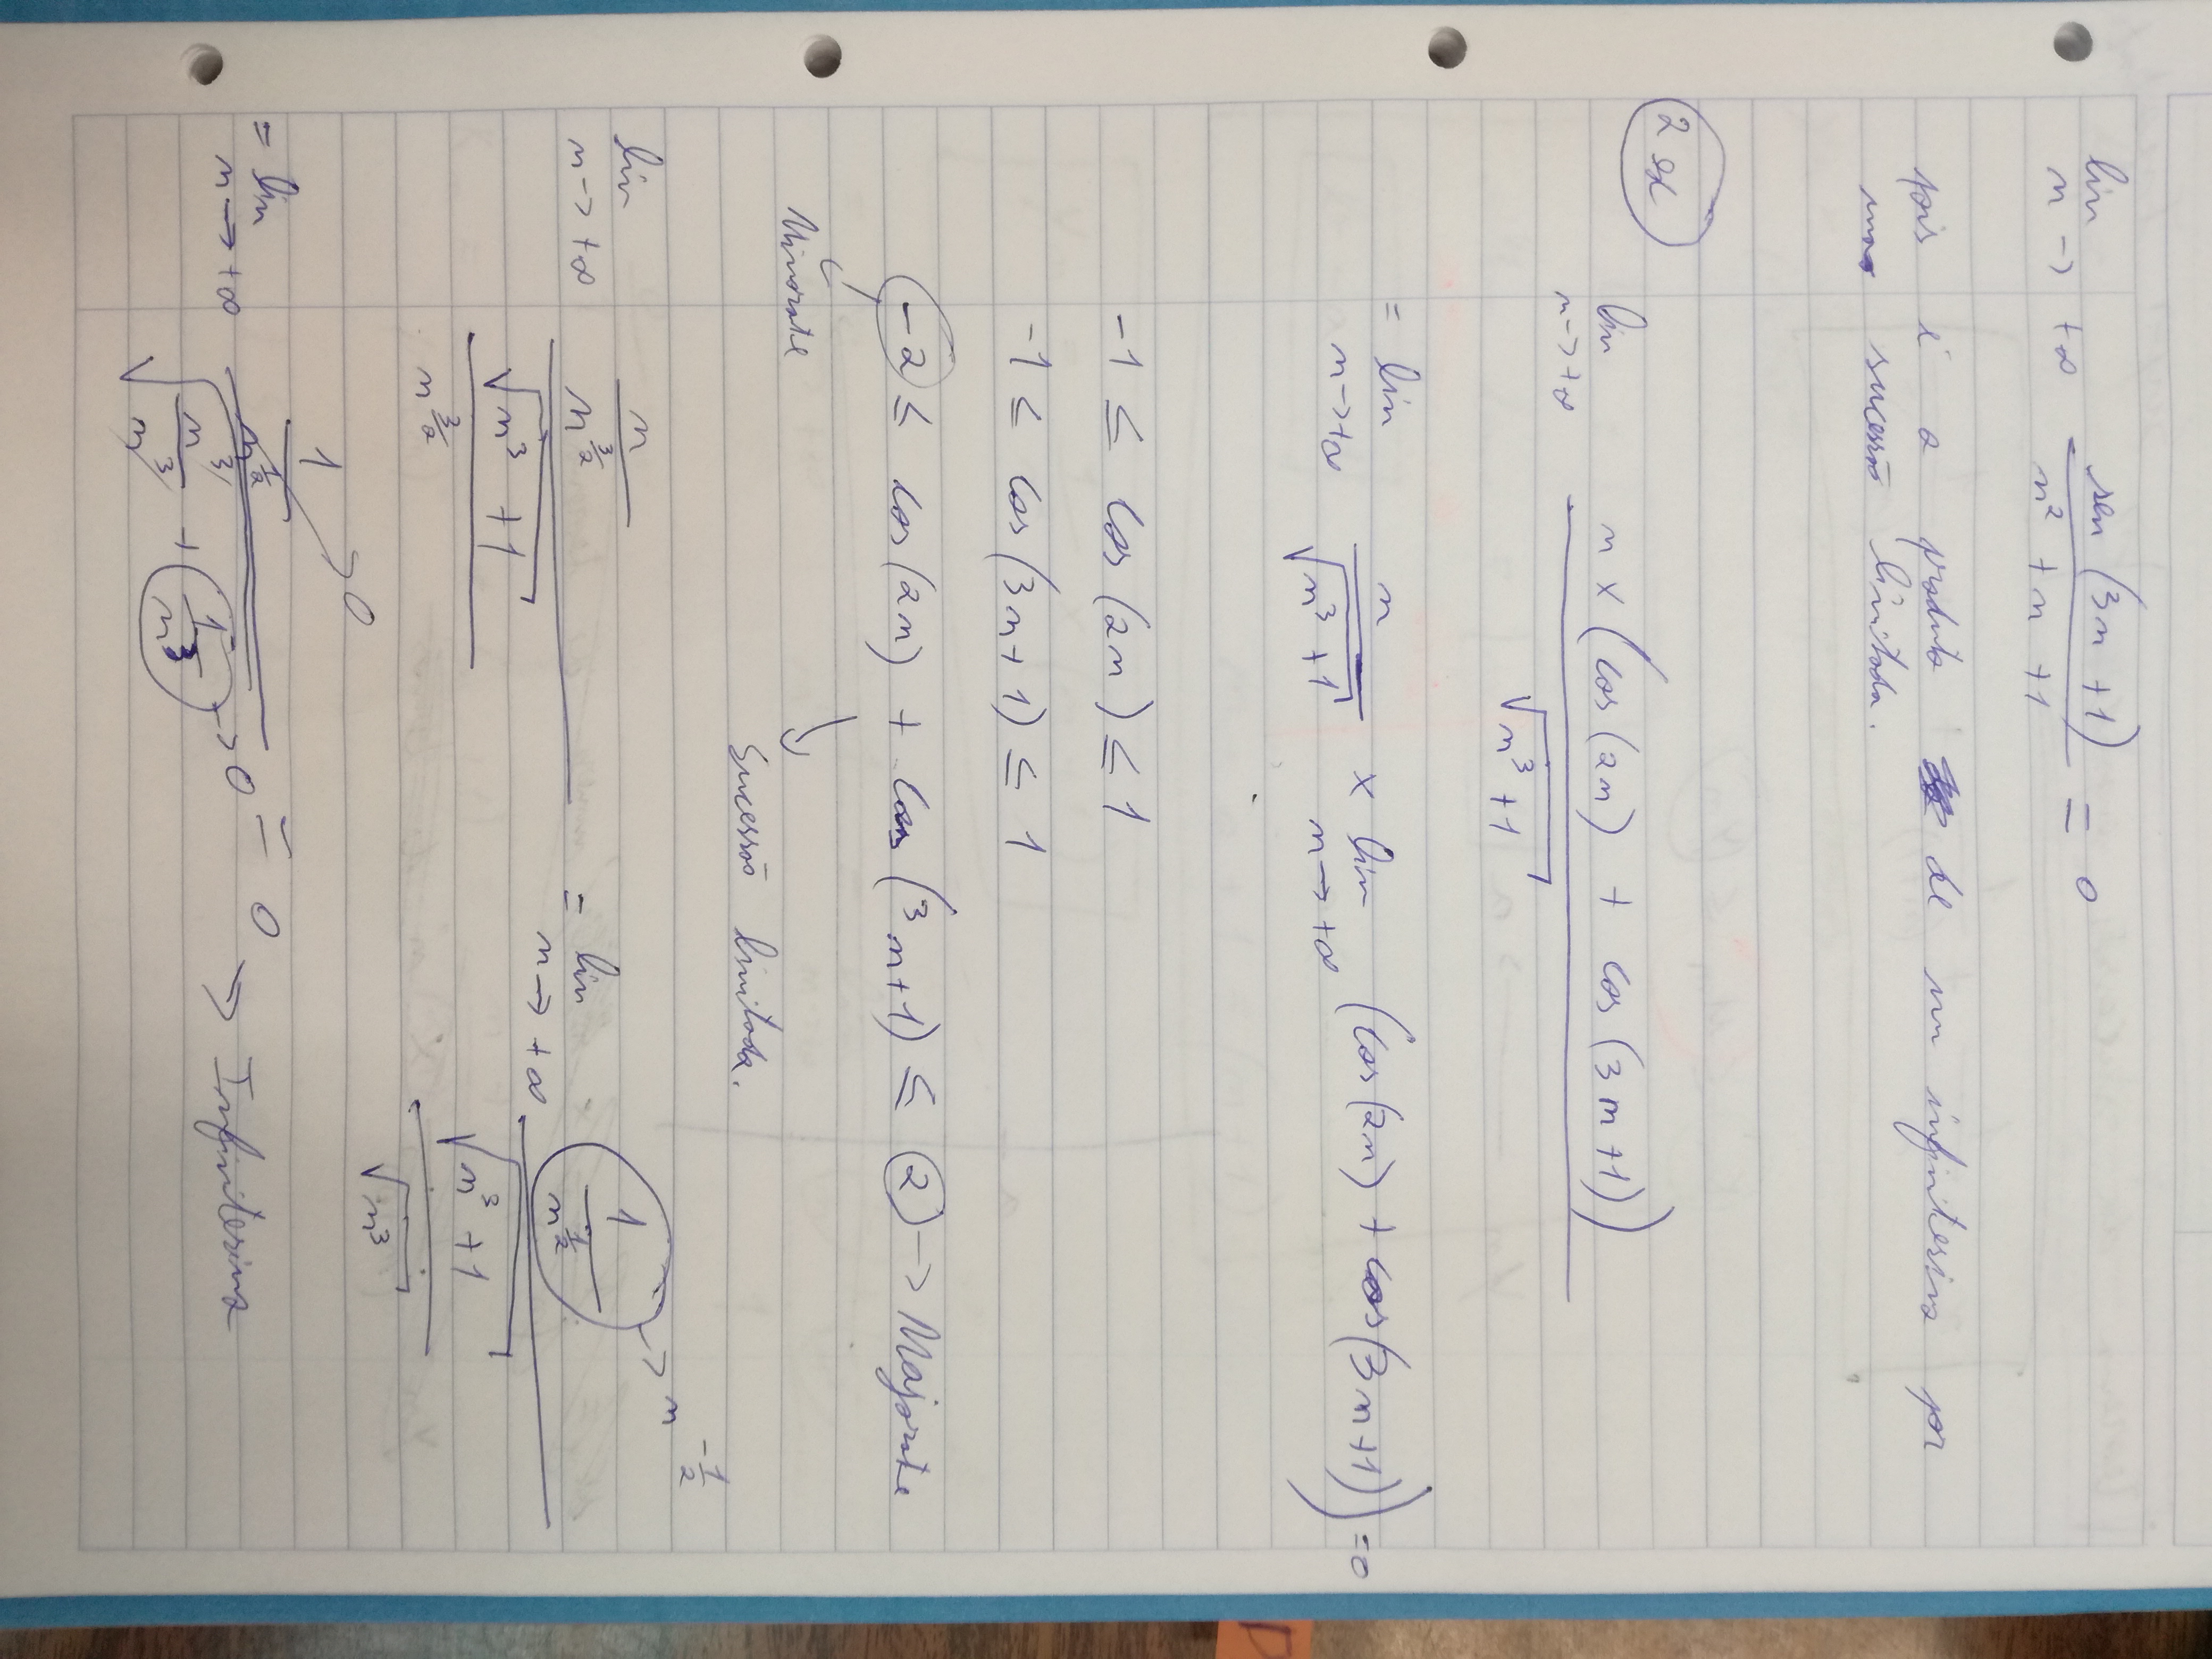 lim n -> +∞ sen (3n + 1) / n² + n + 1 = 0
pois é o produto de um infinitésimo por
uma sucessão limitada.
2 ex
lim n -> +∞ n × (cos (2n) + cos (3n+1)) / √(n³ + 1)
= lim n -> +∞ n / √(n³ + 1) × lim n -> +∞ (cos (2n) + cos (3n+1)) = 0
-1 ≤ cos (2n) ≤ 1
-1 ≤ cos (3n+1) ≤ 1
-2 ≤ cos (2n) + cos (3n+1) ≤ 2 -> Majorante
Minorante
Sucessão limitada.
lim n -> +∞ (n / n^(3/2)) / (√(n³ + 1) / n^(3/2)) = lim n -> +∞ (1 / n^(1/2)) / (√(n³ + 1) / √n³) -> n^(-1/2)
= lim n -> +∞ (1 / n^(1/2)) -> 0 / √(n³ / n³ + (1 / n³) -> 0) = 0 -> Infinitésimo